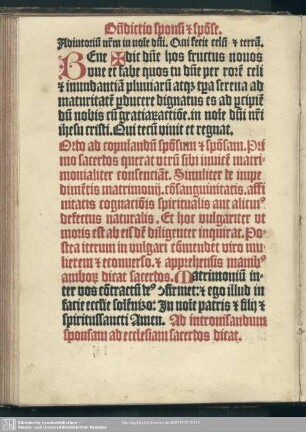 Bñdictio sponsi & spōse.
Adiutoriū nr̄m in noīe dn̄i. Qui fecit celū & terrā.
BEne ✠ dic dn̄e hos fructus nouos
vue et fabe quos tu dn̄e per rorē celi
& inundantiā pluuiarū atqꝫ tp̄a serena ad
maturitatē ꝑducere dignatus es ad ꝑcipiē
dū nobis cū gratiaꝝactiōe. in noīe dn̄i nr̄i
ihesu cristi. Qui tecū viuit et regnat.
Ordo ad copulandū spōsum & spōsam. Pri
mo sacerdos querat vtrū sibi inuicē matri-
monialiter consenciāt. Similiter de impe
dimētis matrimonij, cōsanguinitatis, affi
nitatis cognatiōis spiritualis aut alicuiꝰ
defectus naturalis. Et hoc vulgariter vt
moris est ab eisdē diligenter inquirat. Po
strea iterum in vulgari cōmendet viro mu
lierem & econuerso. & apprehensis manibꝰ
amboꝝ dicat sacerdos. Matrimoniū in
ter vos cōtractū deꝰ ꝯfirmet: & ego illud in
facie ecclīe solēnizo: In noīe patris & filij &
spiritussancti Amen. Ad intromittandum
sponsam ad ecclesiam sacerdos dicat.